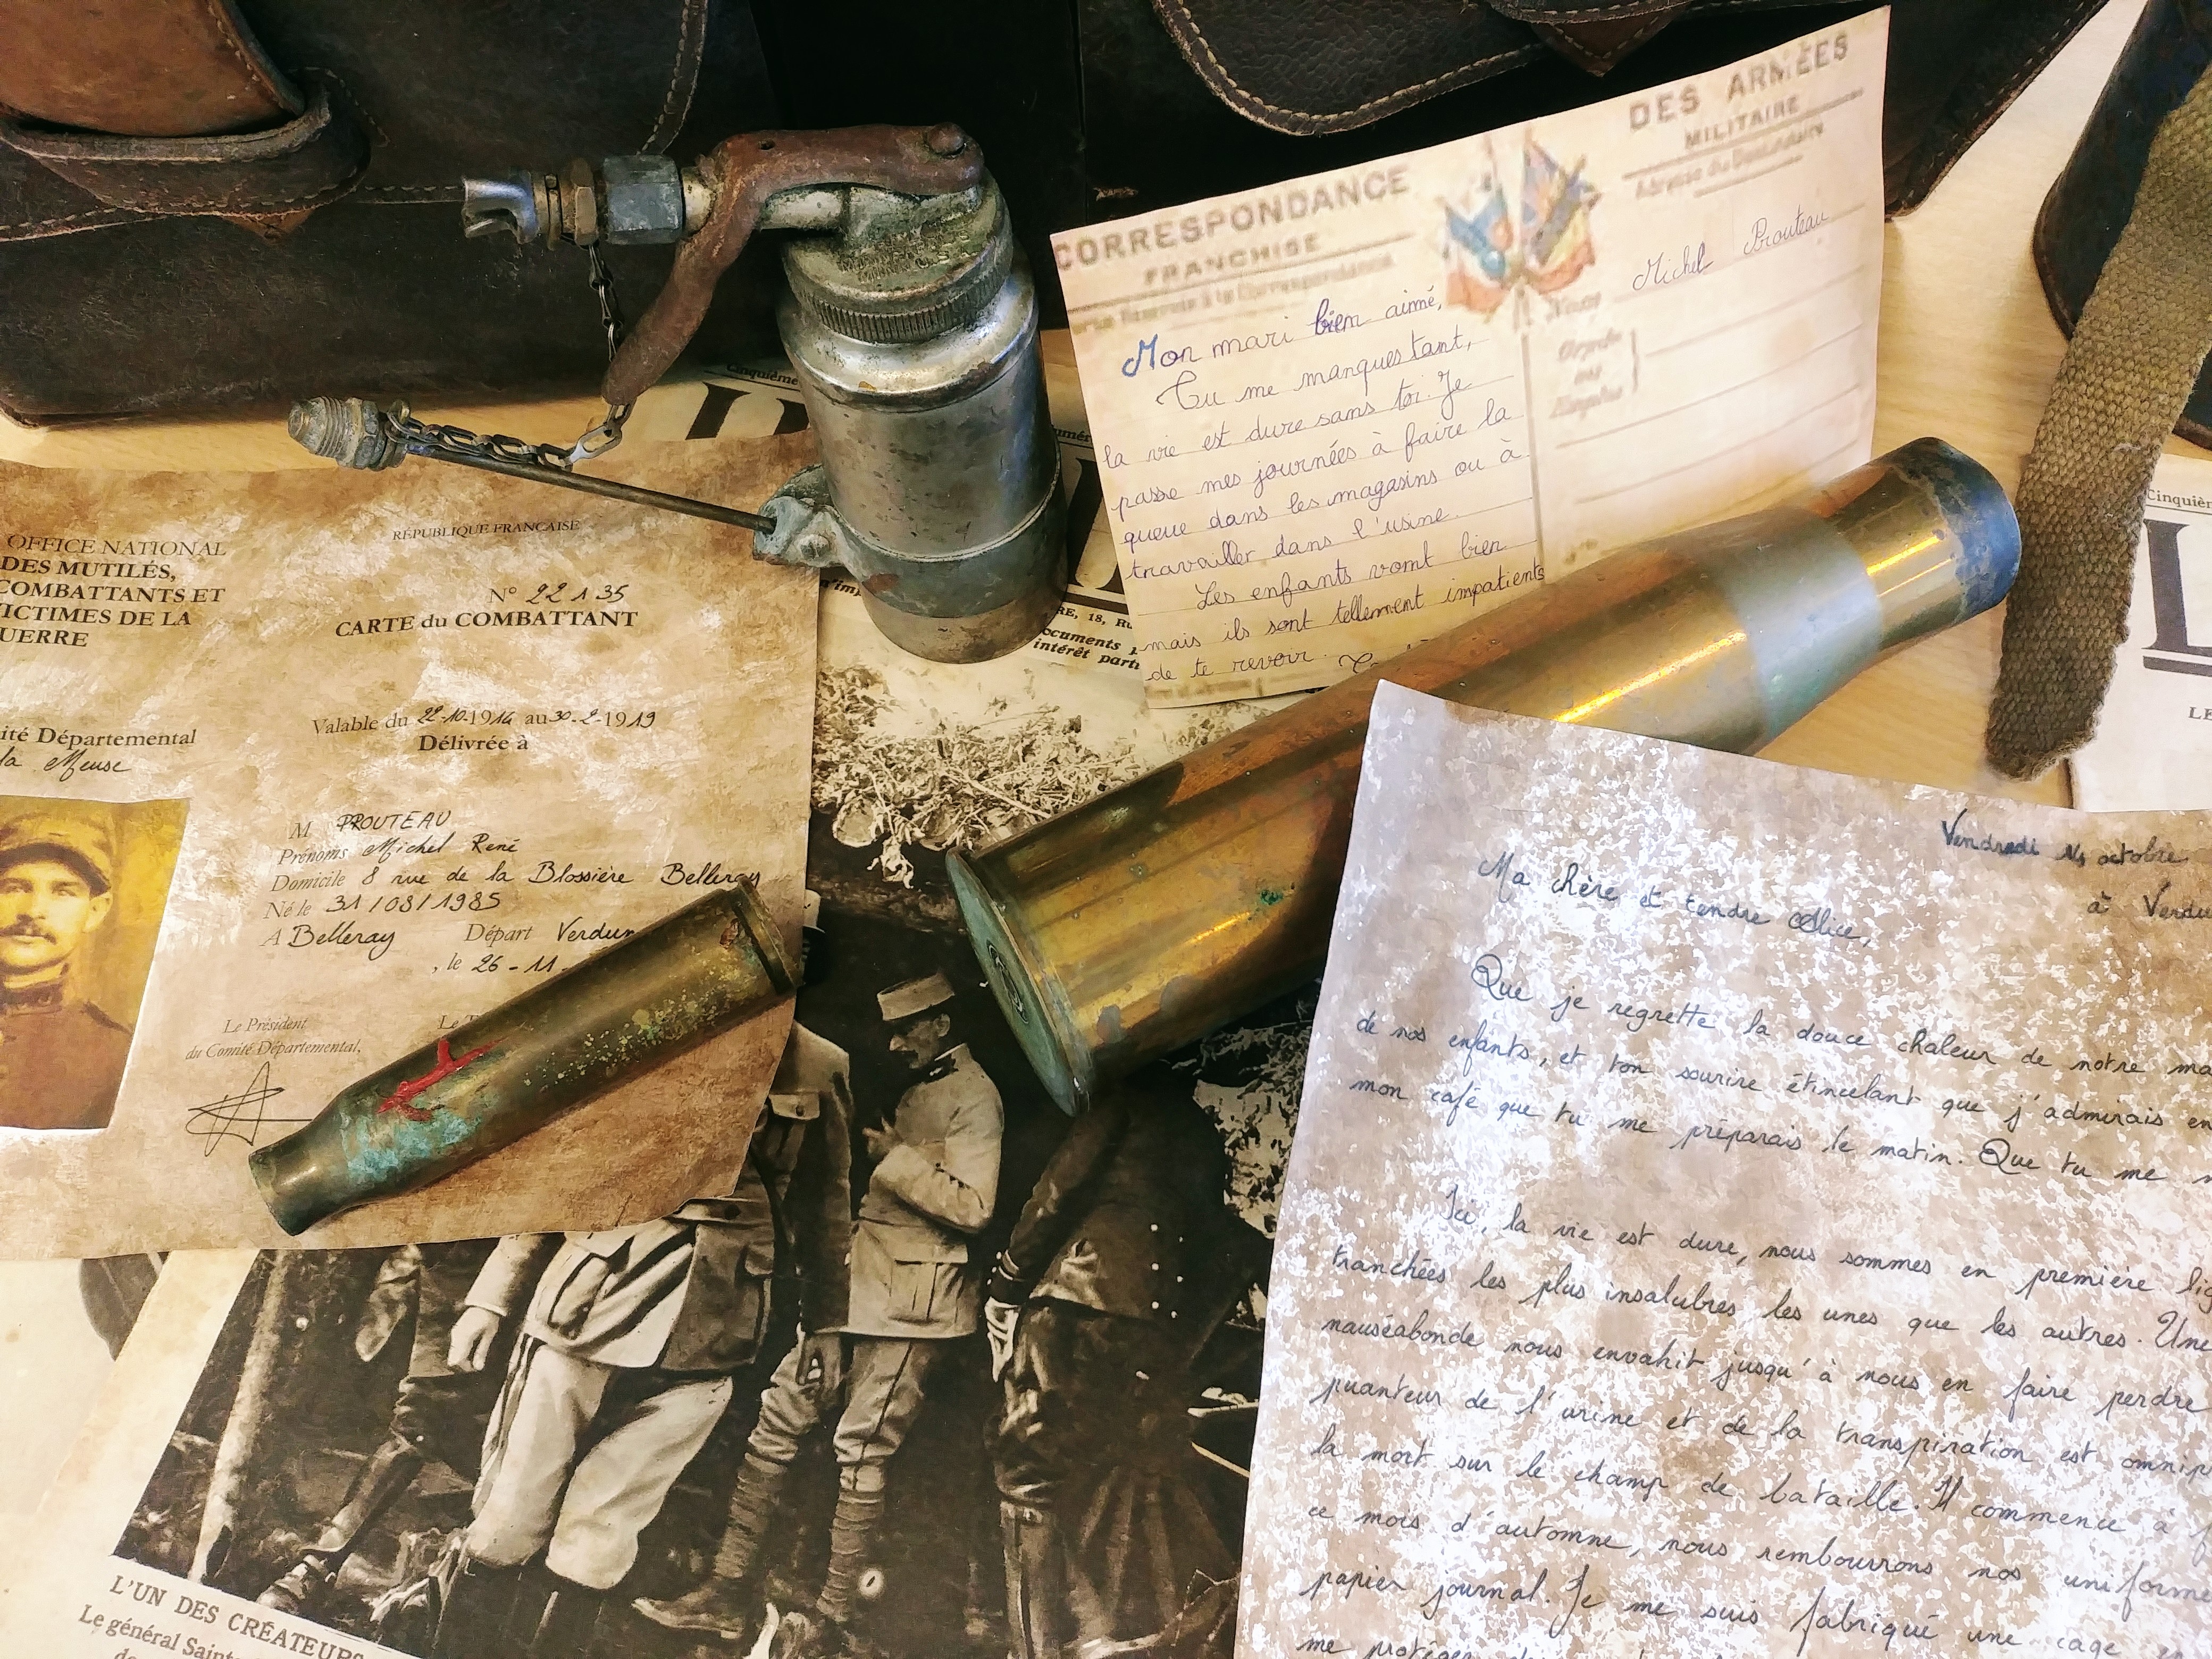 CORRESPONDANCE
FRANCHISE
DES ARMÉES
MILITAIRE
Adresse du Destinataire
Michel Prouteau
Mon mari bien aimé,
Tu me manques tant,
la vie est dure sans toi. Je
passe mes journées à faire la
queue dans les magasins ou à
travailler dans l'usine.
Les enfants vont bien
mais ils sont tellement impatients
de te revoir.
Cinquièm
RE, 18, RU
ocuments
intérêt parti
OFFICE NATIONAL
DES MUTILÉS,
COMBATTANTS ET
VICTIMES DE LA
UERRE
ité Départemental
la Meuse
RÉPUBLIQUE FRANCAISE
N° 22135
CARTE du COMBATTANT
Valable du 22-10-1914 au 30-2-1919
Délivrée à
M PROUTEAU
Prénoms Michel René
Domicile 8 rue de la Blossière Belleray
Né le 31/08/1985
A Belleray Départ Verdun
, le 26-11-
Le Président
du Comité Départemental,
Le
Cinquièm
L
LE
Vendredi 14 octobre
à Verdu
Ma chère et tendre Alice,
Que je regrette la douce chaleur de notre ma
de nos enfants, et ton sourire étincelant que j'admirais en
mon café que tu me préparais le matin. Que tu me m
Ici, la vie est dure, nous sommes en première lig
tranchées les plus insalubres les unes que les autres. Une
nauséabonde nous envahit jusqu'à nous en faire perdre
puanteur de l'urine et de la transpiration est omnip
la mort sur le champ de bataille. Il commence à f
ce mois d'automne, nous rembourrons nos uniforme
papier journal. Je me suis fabriqué une cage
me protéger
L'UN DES CRÉATEURS
Le général Saint
de